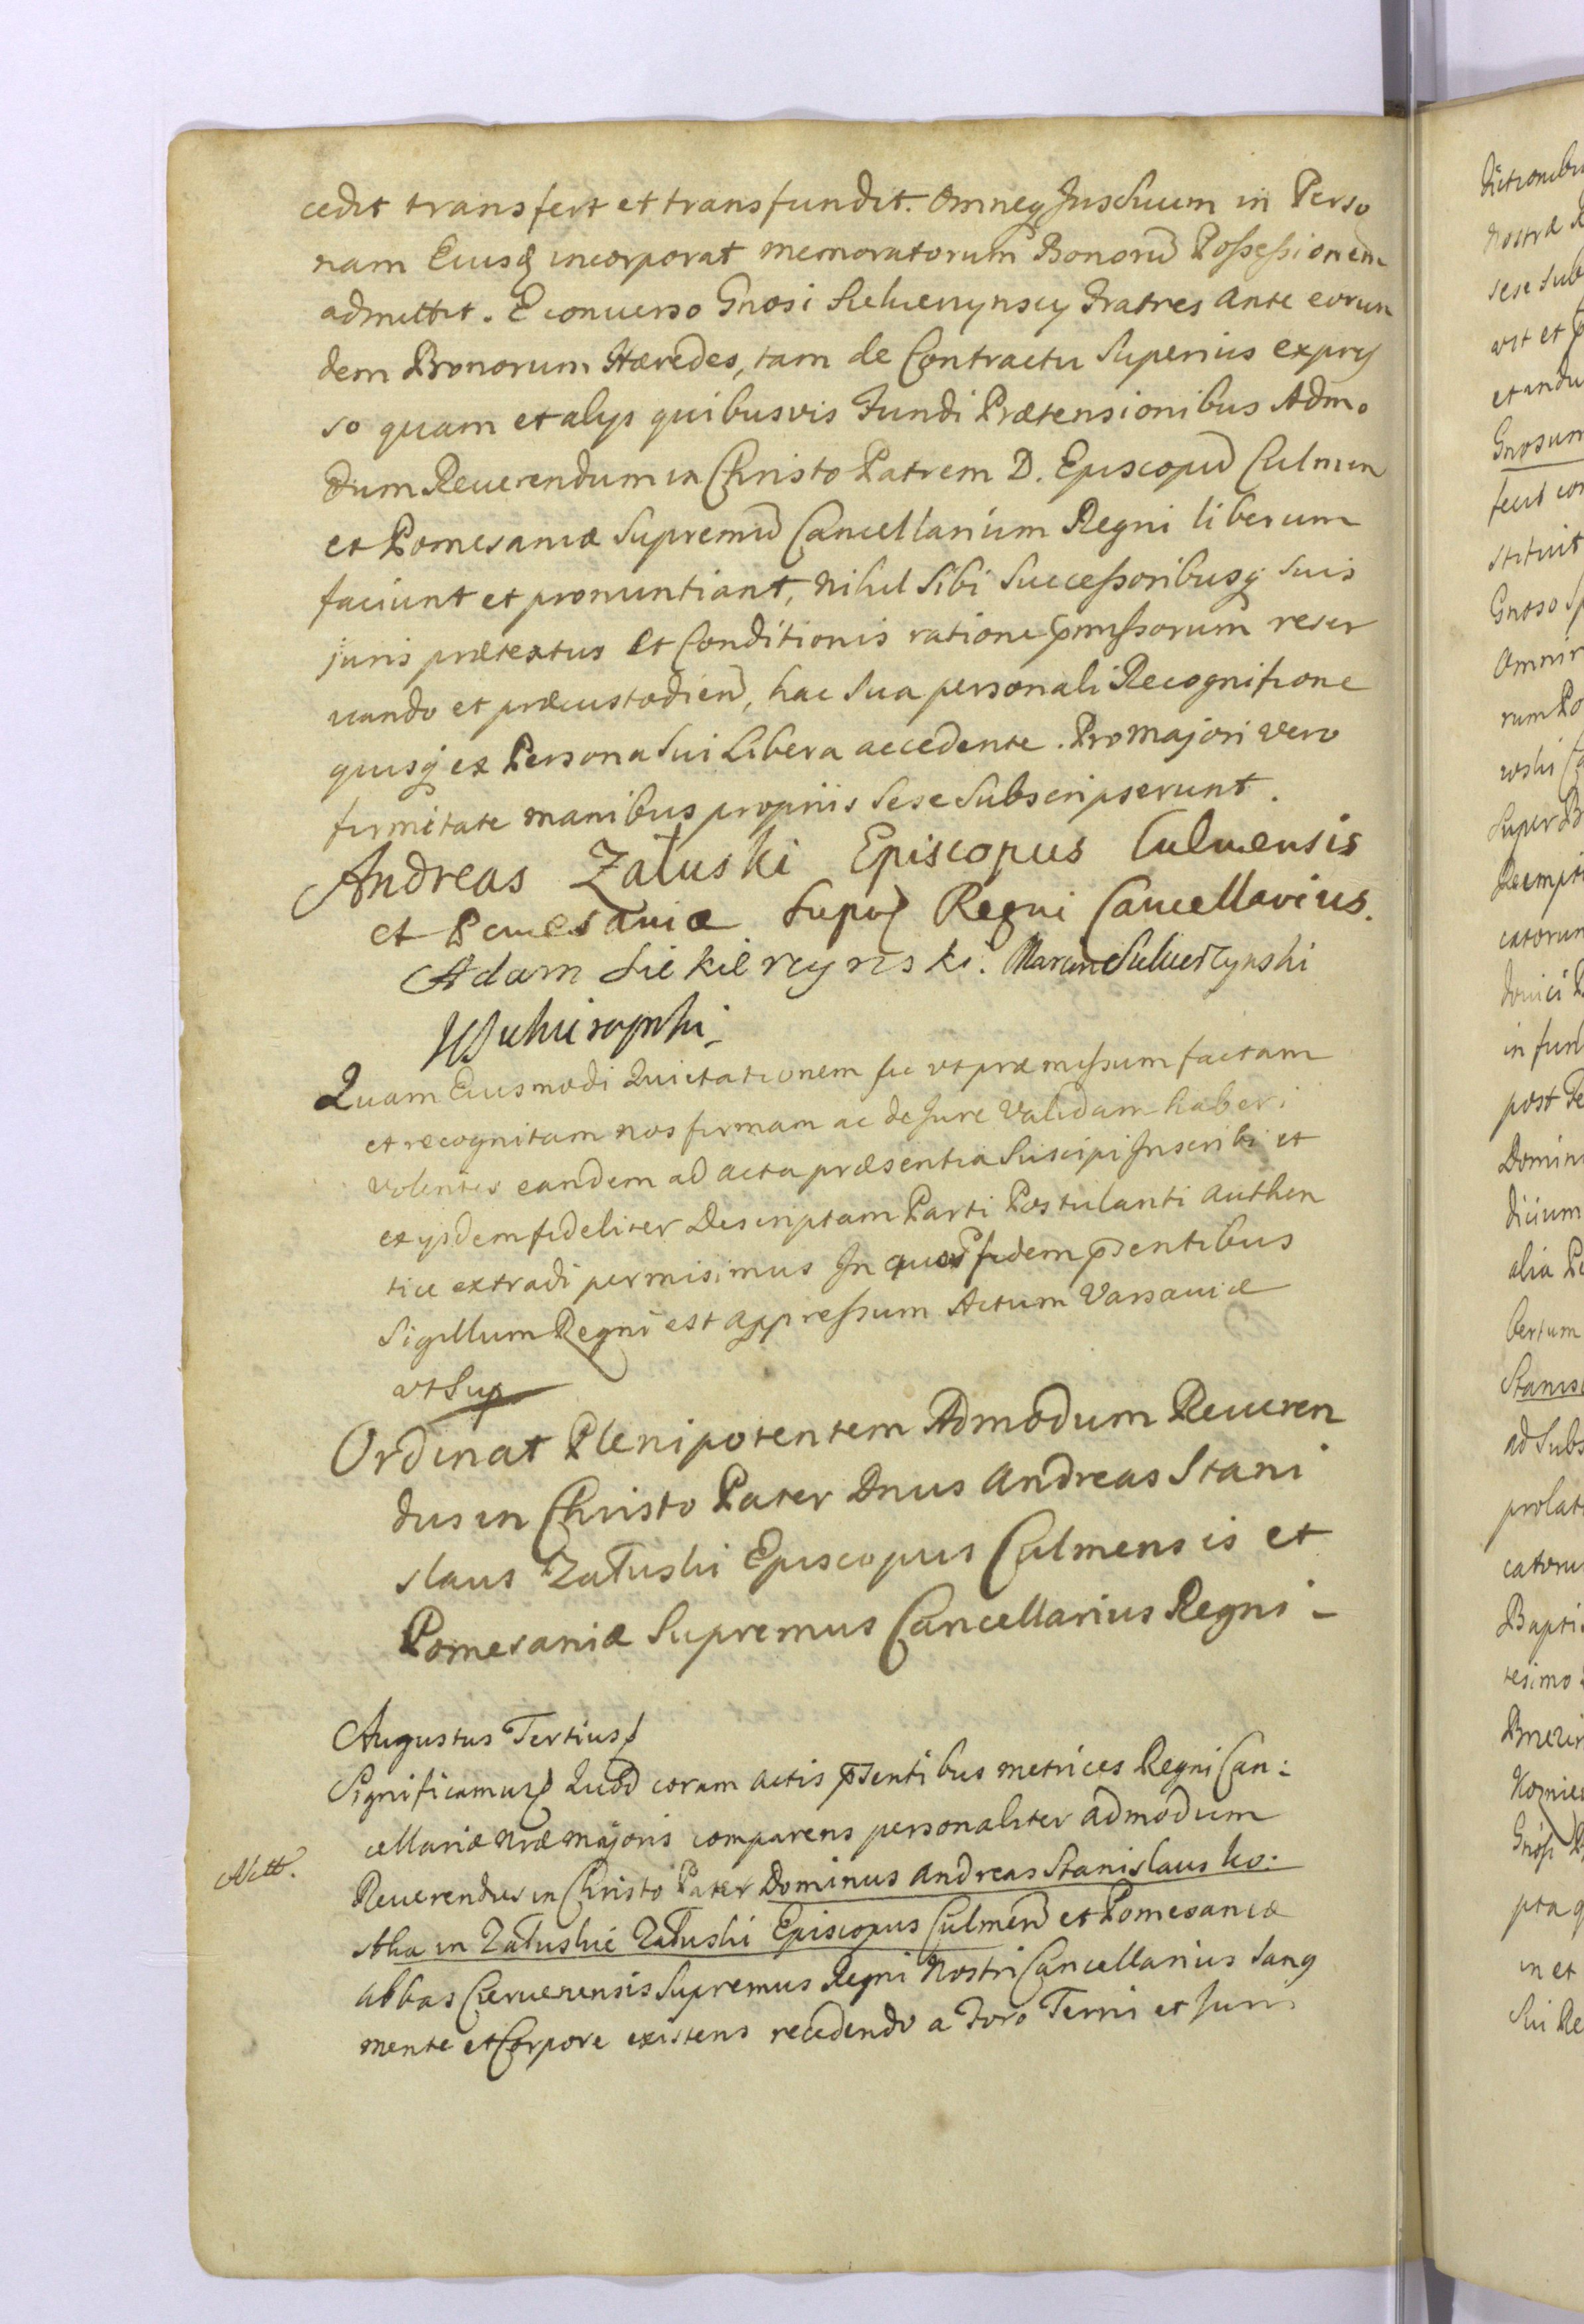 cedit transfert et transfundit. Omneq Jus Suum in Perso
nam Eiusq incorporat memoratorum Bonorũ Possessionem
admittit. E conuerso Gnosi Siekierzynscy Fratres Ante eorun
dem Bonorum Hæredes, tam de Contractu Superius expres
so quam et alys quibusvis Fundi Prætensionibus Admo
dum Reuerendum in Christo Patrem D. Episcopũ Culmen
et Pomesaniæ Supremũ Cancellarium Regni liberum
faciunt et pronuntiant, Nihil Sibi Successoribusq Suis
juris prætextus et Conditionis ratione præmissorum reser
uando et præcustodien, hac Sua personali Recognitione
quisq ex Persona Sui Libera accedente. Pro majori vero
firmitate manibus propriis Sese Subscripserunt.
Andreas Załuski Episcopus Culmensis
et Pomesaniæ Supr Regni Cancellarius.
Adam Siekierzynski. Marcin Siekierzynski
Quam Eiusmodi Quietationem sic ut præmissum factam
et recognitam nos firmam ac de Jure Validam haberi
volentes eandem ad acta præsentia Suscipi Inscribi et
ex ijsdem fideliter Descriptam Parti Postulanti Authen
tice extradi permisimus In quor fidem psentibus
Sigillum Regni est appressum Actum Varsauiæ
ut Sup
Ordinat Plenipotentem Admodum Reueren
dus in Christo Pater Dnus Andreas Stani
slaus Załuski Episcopus Culmensis et
Pomesaniæ Supremus Cancellarius Regni -
Augustus Tertius
Significamus Quod coram actis psentibus metrices Regni Can:
cellariæ nræ majoris comparens personaliter admodum
Reuerendus in Christo Pater Dominus Andreas Stanislaus ko:
stka in Załuskie Załuski Episcopus Culmen et Pomesaniæ
abbas Czeruenensis Supremus Regni Nostri Cancellarius Sang
mente et Corpore existens recedendo a Foro Terris et Juris